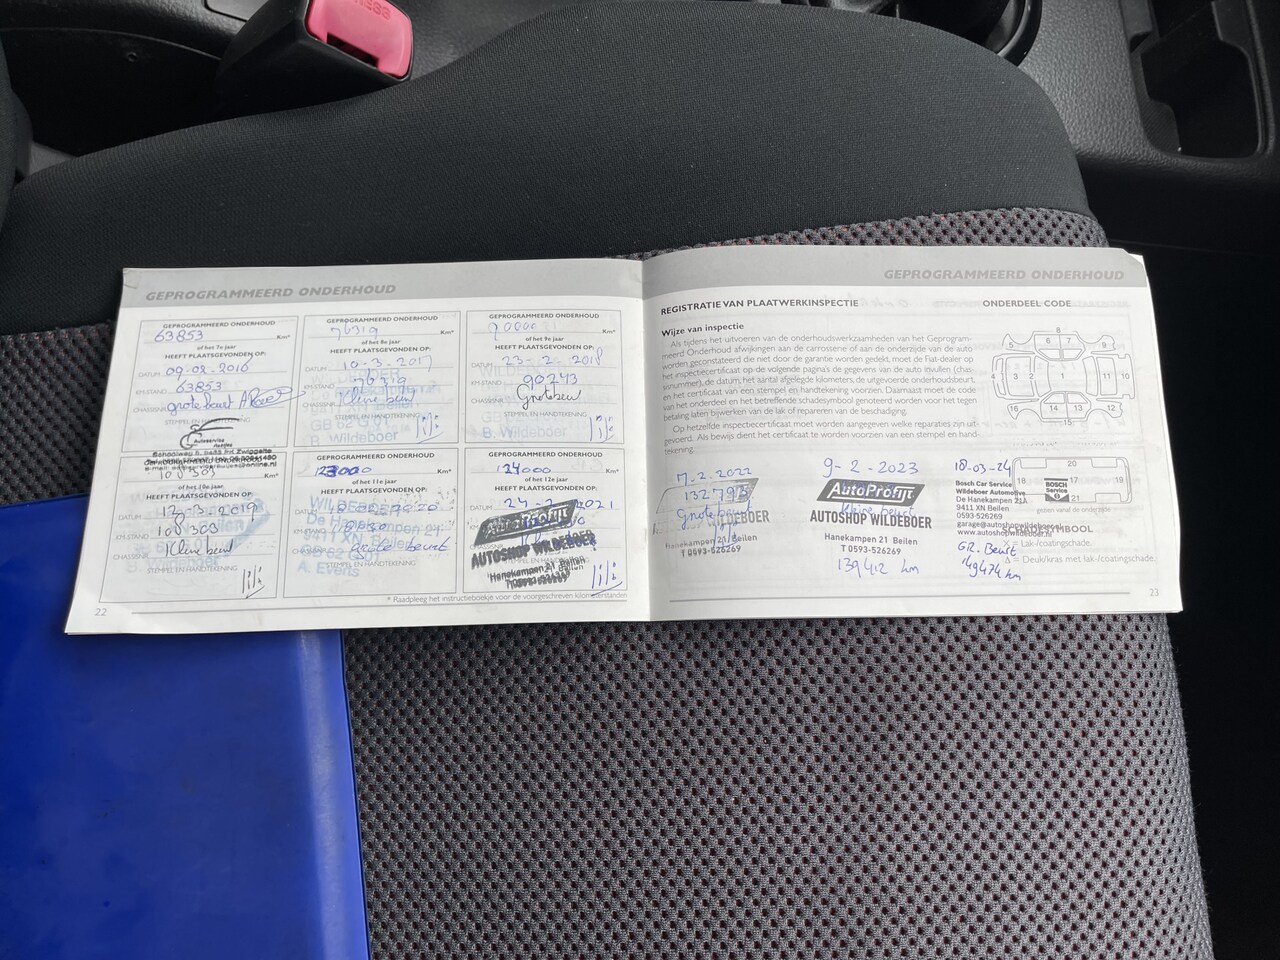 PRESS
GEPROGRAMMEERD ONDERHOUD
GEPROGRAMMEERD ONDERHOUD
63853 Km*
of het 7e jaar
HEEFT PLAATSGEVONDEN OP:
DATUM 09-02-2016
KM-STAND 63853
grote beurt
STEMPEL EN HANDTEKENING
Autoservice
GEPROGRAMMEERD ONDERHOUD
76319 Km*
of het 8e jaar
HEEFT PLAATSGEVONDEN OP:
DATUM 10-3-2017
76319
Kleine beurt
B. Wildeboer
GEPROGRAMMEERD ONDERHOUD
90000 Km*
of het 9e jaar
HEEFT PLAATSGEVONDEN OP:
DATUM 23-2-2018
KM-STAND 90243
Grote beurt
STEMPEL EN HANDTEKENING
B. Wildeboer
108303 Km*
of het 10e jaar
HEEFT PLAATSGEVONDEN OP:
DATUM 12-3-2019
108303
Kleine beurt
STEMPEL EN HANDTEKENING
B. Wildeboer
GEPROGRAMMEERD ONDERHOUD
123000 Km*
of het 11e jaar
HEEFT PLAATSGEVONDEN OP:
Grote beurt
A. Everts
GEPROGRAMMEERD ONDERHOUD
124000 Km*
of het 12e jaar
HEEFT PLAATSGEVONDEN OP:
AutoProfijt
AUTOSHOP WILDEBOER
Hanekampen 21 Beilen
T 0593-526269
* Raadpleeg het instructieboekje voor de voorgeschreven kilometerstanden
22
GEPROGRAMMEERD ONDERHOUD
REGISTRATIE VAN PLAATWERKINSPECTIE
ONDERDEEL CODE
Wijze van inspectie
Als tijdens het uitvoeren van de onderhoudswerkzaamheden van het Geprogram-
meerd Onderhoud afwijkingen aan de carrosserie of aan de onderzijde van de auto
worden geconstateerd die niet door de garantie worden gedekt, moet de Fiat-dealer op
het inspectiecertificaat op de volgende pagina's de gegevens van de auto invullen (chas-
sisnummer), de datum, het aantal afgelegde kilometers, de uitgevoerde onderhoudsbeurt,
en het certificaat van een stempel en handtekening voorzien. Daarnaast moet de code
van het onderdeel en het betreffende schadesymbool genoteerd worden voor het tegen
betaling laten bijwerken van de lak of repareren van de beschadiging.
Op hetzelfde inspectiecertificaat moet worden aangegeven welke reparaties zijn uit-
gevoerd. Als bewijs dient het certificaat te worden voorzien van een stempel en hand-
tekening.
8
5 6 7 9
4 3 2 1 11 10
16 14 13 12
15
7-2-2022
Grote beurt
Hanekampen 21 Beilen
T 0593-526269
9-2-2023
AutoProfijt
Kleine beurt
AUTOSHOP WILDEBOER
Hanekampen 21 Beilen
T 0593-526269
139412 km
18-03-24
Bosch Car Service
Wildeboer Automotive
De Hanekampen 21A
9411 XN Beilen
0593-526269
garage@autoshopwildeboer.nl
www.autoshopwildeboer.nl
BOSCH
Service
GR. Beurt
149474 km
20
18 17 19
21
gezien vanaf de onderzijde
SCHADESYMBOOL
X = Lak-/coatingschade.
Δ = Deuk/kras met lak-/coatingschade.
23